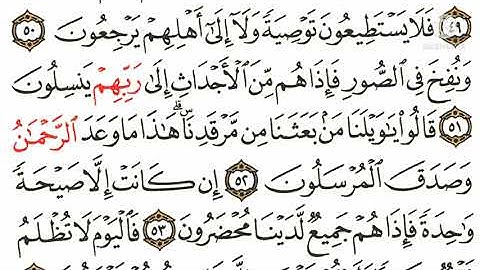 ٤٩ فَلَا يَسْتَطِيعُونَ تَوْصِيَةً وَلَآ إِلَىٰٓ أَهْلِهِمْ يَرْجِعُونَ ٥٠
وَنُفِخَ فِي ٱلصُّورِ فَإِذَا هُم مِّنَ ٱلْأَجْدَاثِ إِلَىٰ رَبِّهِمْ يَنسِلُونَ
٥١ قَالُوا۟ يَٰوَيْلَنَا مَنۢ بَعَثَنَا مِن مَّرْقَدِنَاۜ ۗ هَٰذَا مَا وَعَدَ ٱلرَّحْمَٰنُ
وَصَدَقَ ٱلْمُرْسَلُونَ ٥٢ إِن كَانَتْ إِلَّا صَيْحَةً
وَٰحِدَةً فَإِذَا هُمْ جَمِيعٌ لَّدَيْنَا مُحْضَرُونَ ٥٣ فَٱلْيَوْمَ لَا تُظْلَمُ